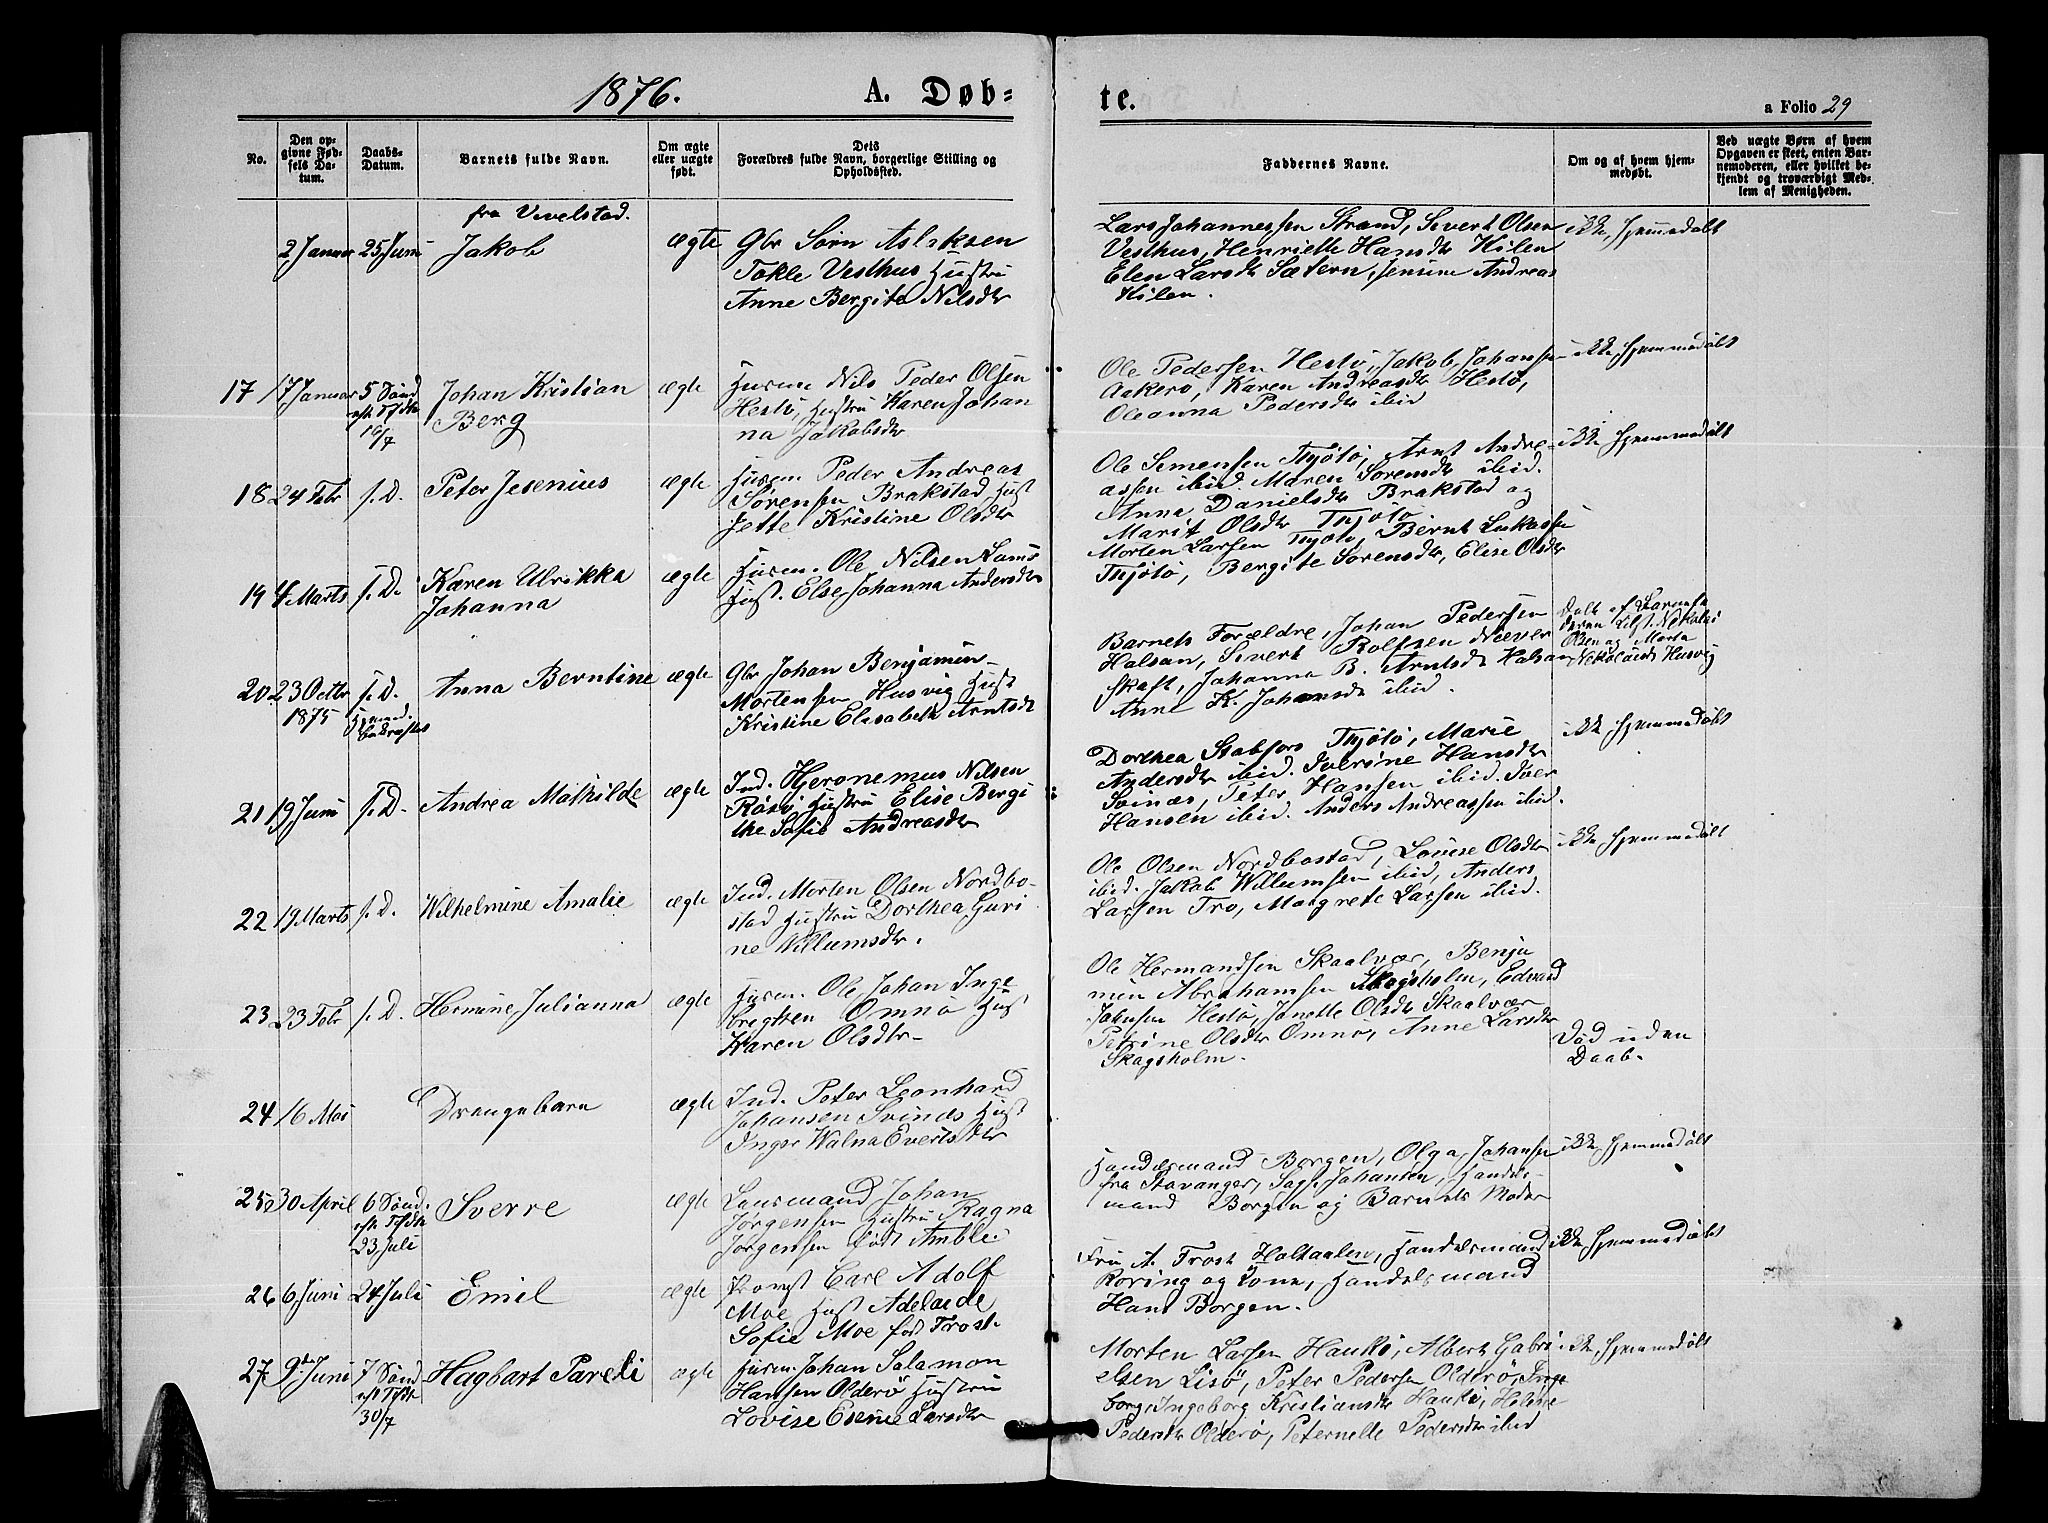 1876.
A. Døb=
te.
a Folio 29
No.
Den op=
givne Fød=
sels Da=
tum.
Daabs=
Datum.
Barnets fulde Navn.
Om ægte
eller uægte
født.
Dets
Forældres fulde Navn, borgerlige Stilling og
Opholdssted.
Faddernes Navne.
Om og af hvem hjem=
medøbt.
Ved uægte Børn af hvem
Opgaven er skeet, enten Bar=
nemoderen, eller hvilket be=
kjendt og troværdigt Med=
lem af Menigheden.
fra Vevelstad.
2 Januar 25 Juni Jakob ægte Gbr Sørn Aslaksen
Tokle Vesthus Hustru
Anne Bergite Nilsdtr
Lars Johannessen Strand, Sivert Olsen
Vesthus, Henriette Hansdtr Hilen
Elen Larsdtr Sætern, Jensine Andreas
Hilen.
ikke hjemmedøbt
17 17 Januar 5 Sønd
eft Tfdk
16/7
Johan Kristian
Berg
ægte
Husm. Nils Peder Olsen
Hestø, Hustru Karen Johan
na Jakobsdtr
Ole Pedersen Hestø, Jakob Johansen
Aakerø, Karen Andreasdtr Hestø,
Oleanna Pedersdtr ibid
ikke hjemmedøbt
18 24 Febr s. D. Peter Jesenius ægte
Husm Peder Andreas
Sørensen Brakstad Hust
Jette Kristine Olsdtr
Ole Simensen Thjøtø, Arnt Andre-
assen ibid. Maren Sørensdtr ibid.
Anna Danielsdtr Brakstad og
Marit Olsdtr Thjøtø
ikke hjemmedøbt
19 4 Marts s. D. Karen Ulrikka
Johanna
ægte
Husm. Ole Nilsen
Hust. Else Johanna Andersdtr
Morten Larsen Thjøtø, Bernt Lukassen
Thjøtø, Bergite Sørensdtr, Elise Olsdtr
20 23 Octbr
1875
s. D.
Hjemmed.
bekræftes
Anna Berntine ægte
Gbr Johan Benjamin
Mortensen Husvig Hust
Kristine Elisabeth Arntsdtr
Barnets Forældre, Johan Pedersen
Halsan, Sivert Rolfsen Næver
skaft, Johanna B. Arntsdtr Halsan
Anne K. Johansdtr ibid.
Olsen og Marta
Nikolaisdtr Husvig
21 19 Juni s. D. Andrea Mathilde ægte
Ind. Hjeronemus Nilsen
Rosø Hustru Elise Bergi
the Sofie Andreasdtr
Dorthea Stabfors Thjøtø, Marie
Andersdtr ibid. Iverine Hansdtr
Svinæs, Peter Hansen ibid. Iver
Hansen ibid. Anders Andreassen ibid.
ikke hjemmedøbt
22 19 Marts s. D. Wilhelmine Amalie ægte
Ind. Morten Olsen Nordbo-
stad Hustru Dorthea Guri
ne Willumsdtr.
Ole Olsen Nordbostad, Lovise Olsdtr
ibid. Jakob Willumsen ibid, Anders
Larsen Tro, Margrete Larsen ibid.
ikke hjemmedøbt
23 23 Febr s. D. Hermine Julianna ægte
Husm. Ole Johan Inge
brigtsen Omnø Hust
Karen Olsdtr
Ole Hermandsen Skaalvær, Benja
min Abrahamsen Skogsholm, Edvard
Jakobsen Hestø, Janette Olsdtr Skaalvær
Petrine Olsdtr Omnø, Anne Larsdtr
Skagsholm.
24 16 Mai Drengebarn ægte
Ind. Peter Leonhard
Johansen Svinæs Hust
Inger Walna Evertsdtr
Død uden
Daab.
25 30 April 6 Sønd.
eft Tfdk
23 Juli
Sverre ægte
Lensmand Johan
Jørgensen Hustru Ragna
Jørgensen født Amble.
Handelsmand Borgen, Olga Johansen
fra Stavanger, Johansen, Handels-
mand Borgen og Barnets Moder
ikke hjemmedøbt
26 6 Juni 24 Juli Emil ægte
Provst Carl Adolf
Moe Hust Adelaide
Sofie Moe fød Trost.
Fru A. Trost Holtaalen, Handelsmand
Roring og Kone, Handelsmand
Hans Borgen.
ikke hjemmedøbt
27 9de Juni 7 Sønd
eft Tfdk
30/7
Hagbart Pareli ægte
Husm. Johan Salamon
Hansen Olderø Hustru
Lovise Esine Larsdtr
Morten Larsen Haukø, Albert Gabri
elsen Lisø, Peter Pedersen Olderø, Inge
borg Ingeborg Kristiansdtr Haukø, Helene
Pedersdtr Olderø, Peternelle Pedersdtr ibid
ikke hjemmedøbt